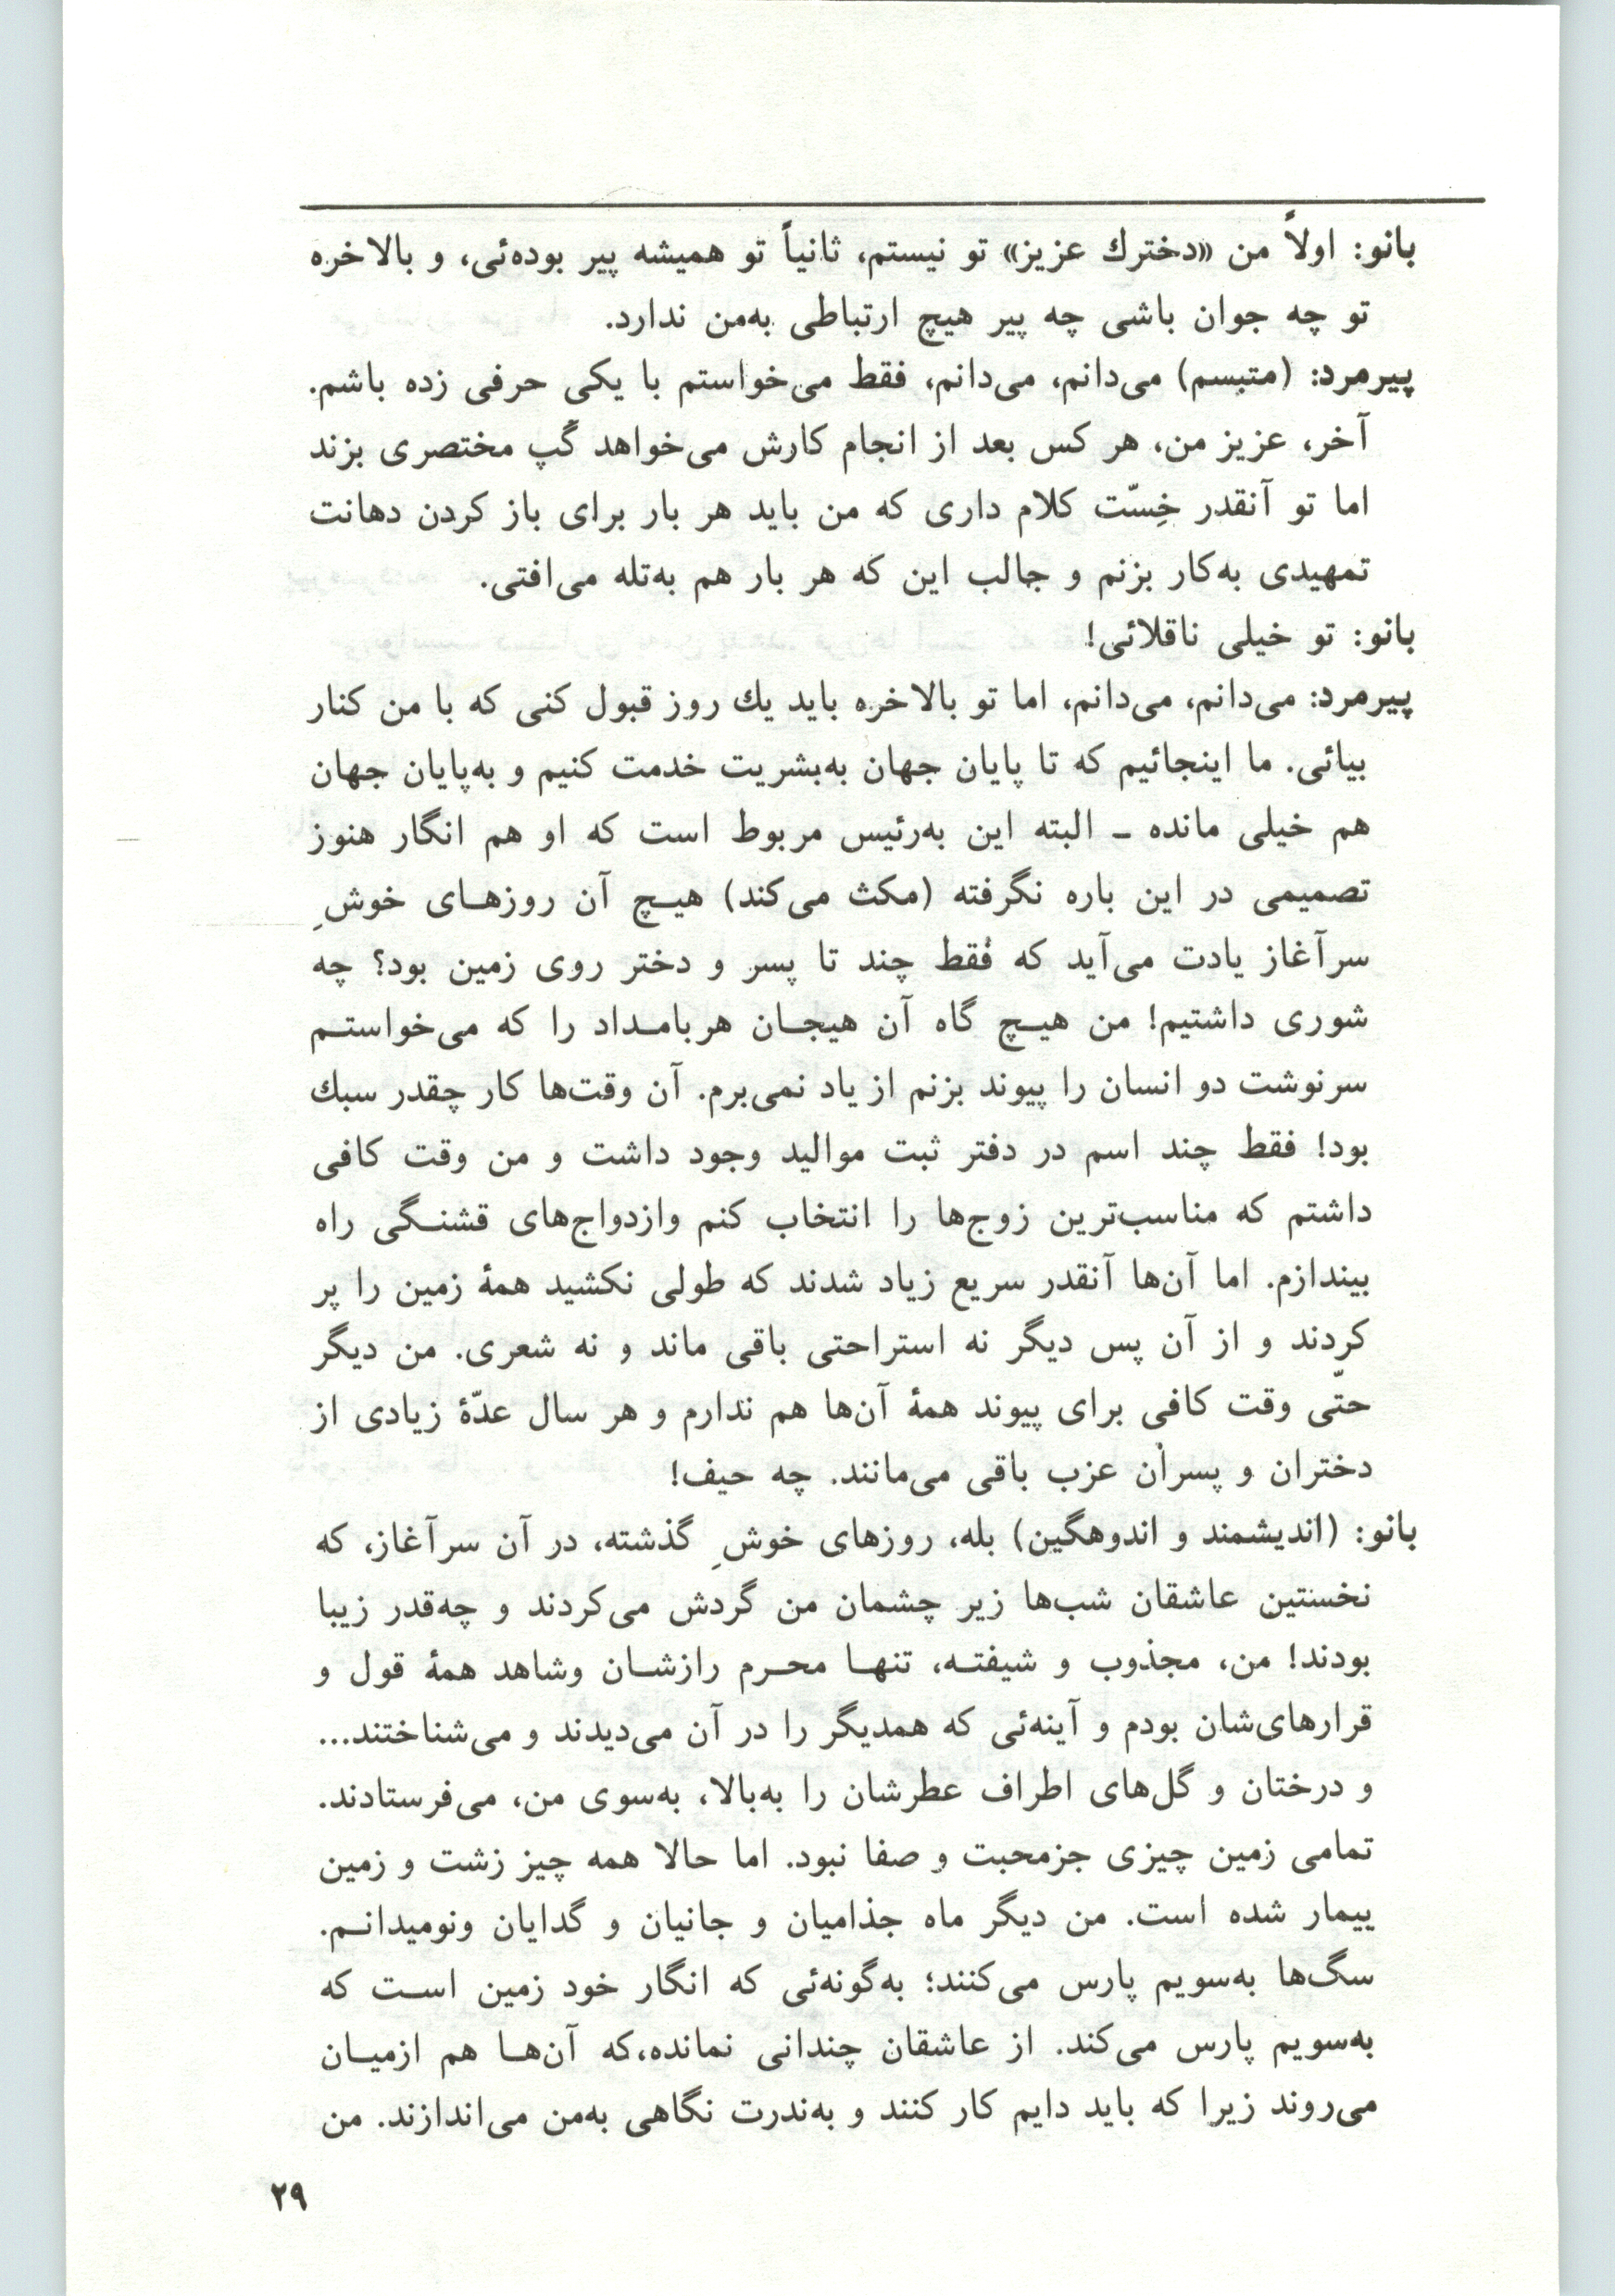 بانو: اولاً من «دخترك عزیز» تو نیستم، ثانیاً تو همیشه پیر بوده‌ئی، و بالاخره
تو چه جوان باشی چه پیر هیچ ارتباطی به‌من ندارد.
پیرمرد: (متبسم) می‌دانم، می‌دانم، فقط می‌خواستم با یکی حرفی زده باشم.
آخر، عزیز من، هر کس بعد از انجام کارش می‌خواهد گَپ مختصری بزند
اما تو آنقدر خِسّت کلام داری که من باید هر بار برای باز کردن دهانت
تمهیدی به‌کار بزنم و جالب این که هر بار هم به‌تله می‌افتی.
بانو: تو خیلی ناقلائی!
پیرمرد: می‌دانم، می‌دانم، اما تو بالاخره باید یك روز قبول کنی که با من کنار
بیائی. ما اینجائیم که تا پایان جهان به‌بشریت خدمت کنیم و به‌پایان جهان
هم خیلی مانده ـ البته این به‌رئیس مربوط است که او هم انگار هنوز
تصمیمی در این باره نگرفته (مکث می‌کند) هیـچ آن روزهـای خوشِ
سرآغاز یادت می‌آید که فقط چند تا پسر و دختر روی زمین بود؟ چه
شوری داشتیم! من هیـچ گاه آن هیجـان هربامـداد را که می‌خواستـم
سرنوشت دو انسان را پیوند بزنم از یاد نمی‌برم. آن وقت‌ها کار چقدر سبك
بود! فقط چند اسم در دفتر ثبت موالید وجود داشت و من وقت کافی
داشتم که مناسب‌ترین زوج‌ها را انتخاب کنم وازدواج‌های قشنـگی راه
بیندازم. اما آن‌ها آنقدر سریع زیاد شدند که طولی نکشید همهٔ زمین را پر
کردند و از آن پس دیگر نه استراحتی باقی ماند و نه شعری. من دیگر
حتّی وقت کافی برای پیوند همهٔ آن‌ها هم ندارم و هر سال عدّهٔ زیادی از
دختران و پسران عزب باقی می‌مانند. چه حیف!
بانو: (اندیشمند و اندوهگین) بله، روزهای خوشِ گذشته، در آن سرآغاز، که
نخستین عاشقان شب‌ها زیر چشمان من گردش می‌کردند و چه‌قدر زیبا
بودند! من، مجذوب و شیفتـه، تنهـا محـرم رازشـان وشاهد همهٔ قول و
قرارهای‌شان بودم و آینه‌ئی که همدیگر را در آن می‌دیدند و می‌شناختند...
و درختان و گل‌های اطراف عطرشان را به‌بالا، به‌سوی من، می‌فرستادند.
تمامی زمین چیزی جزمحبت و صفا نبود. اما حالا همه چیز زشت و زمین
بیمار شده است. من دیگر ماه جذامیان و جانیان و گدایان ونومیدانـم.
سگ‌ها به‌سویم پارس می‌کنند؛ به‌گونه‌ئی که انگار خود زمین اسـت که
به‌سویم پارس می‌کند. از عاشقان چندانی نمانده،که آن‌هـا هم ازمیـان
می‌روند زیرا که باید دایم کار کنند و به‌ندرت نگاهی به‌من می‌اندازند. من
۲۹